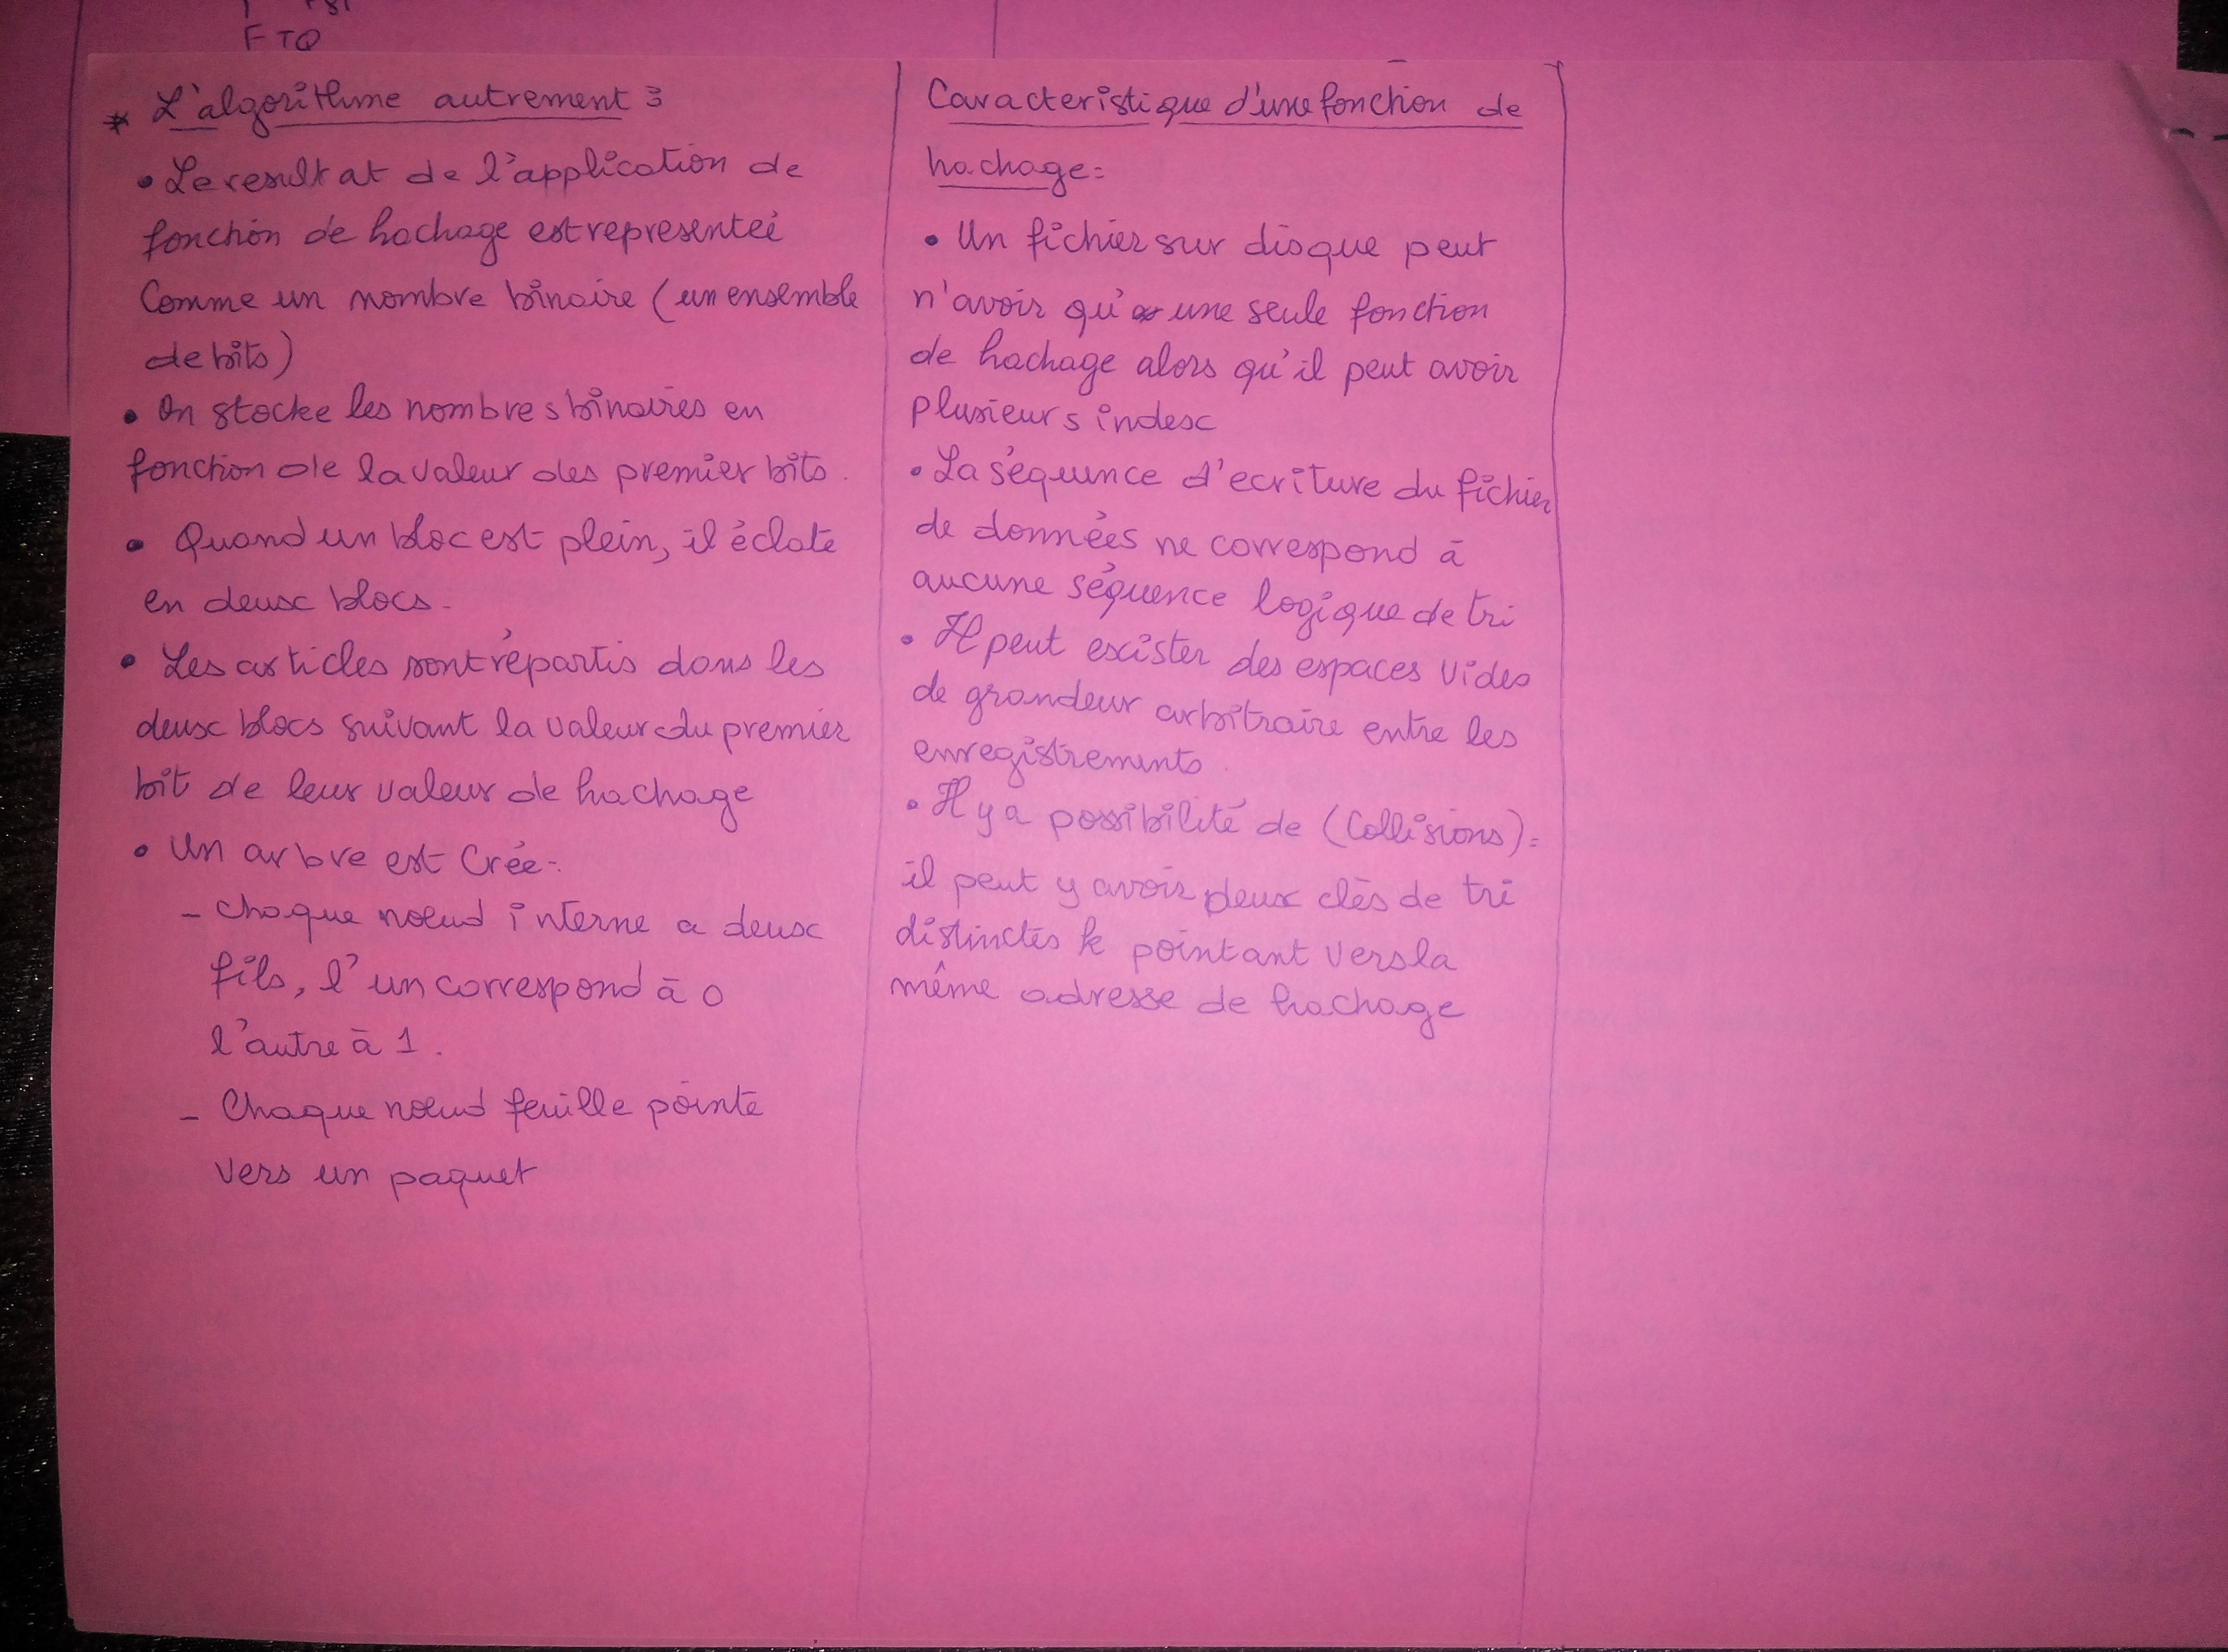 FTQ
* L'algorithme autrement :
• Le resultat de l'application de
fonction de hachage est representeé
Comme un nombre binaire (un ensemble
de bits)
• On stocke les nombres binaires en
fonction de la valeur des premier bits.
• Quand un bloc est plein, il éclate
en deux blocs.
• Les articles sont répartis dans les
deux blocs suivant la valeur du premier
bit de leur valeur de hachage
• Un arbre est Crée:
- chaque nœud interne a deux
fils, l'un correspond à 0
l'autre à 1.
- Chaque nœud feuille pointe
vers un paquet
Caracteristique d'une fonction de
hachage:
• Un fichier sur disque peut
n'avoir qu'une seule fonction
de hachage alors qu'il peut avoir
plusieurs index
• La séquence d'ecriture du fichier
de données ne correspond à
aucune séquence logique de tri
• Il peut exister des espaces vides
de grandeur arbitraire entre les
enregistrements.
• Il y a possibilité de (Collisions):
il peut y avoir deux clés de tri
distinctes k pointant vers la
même adresse de hachage